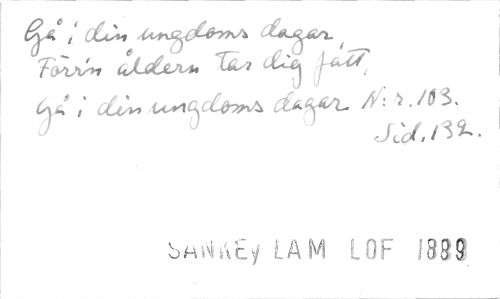 Gå i din ungdoms dagar,
Förr'n åldern tar dig fatt,
Gå i din ungdoms dagar N:r. 103.
Sid. 132.
SANKEY LAM LOF 1889